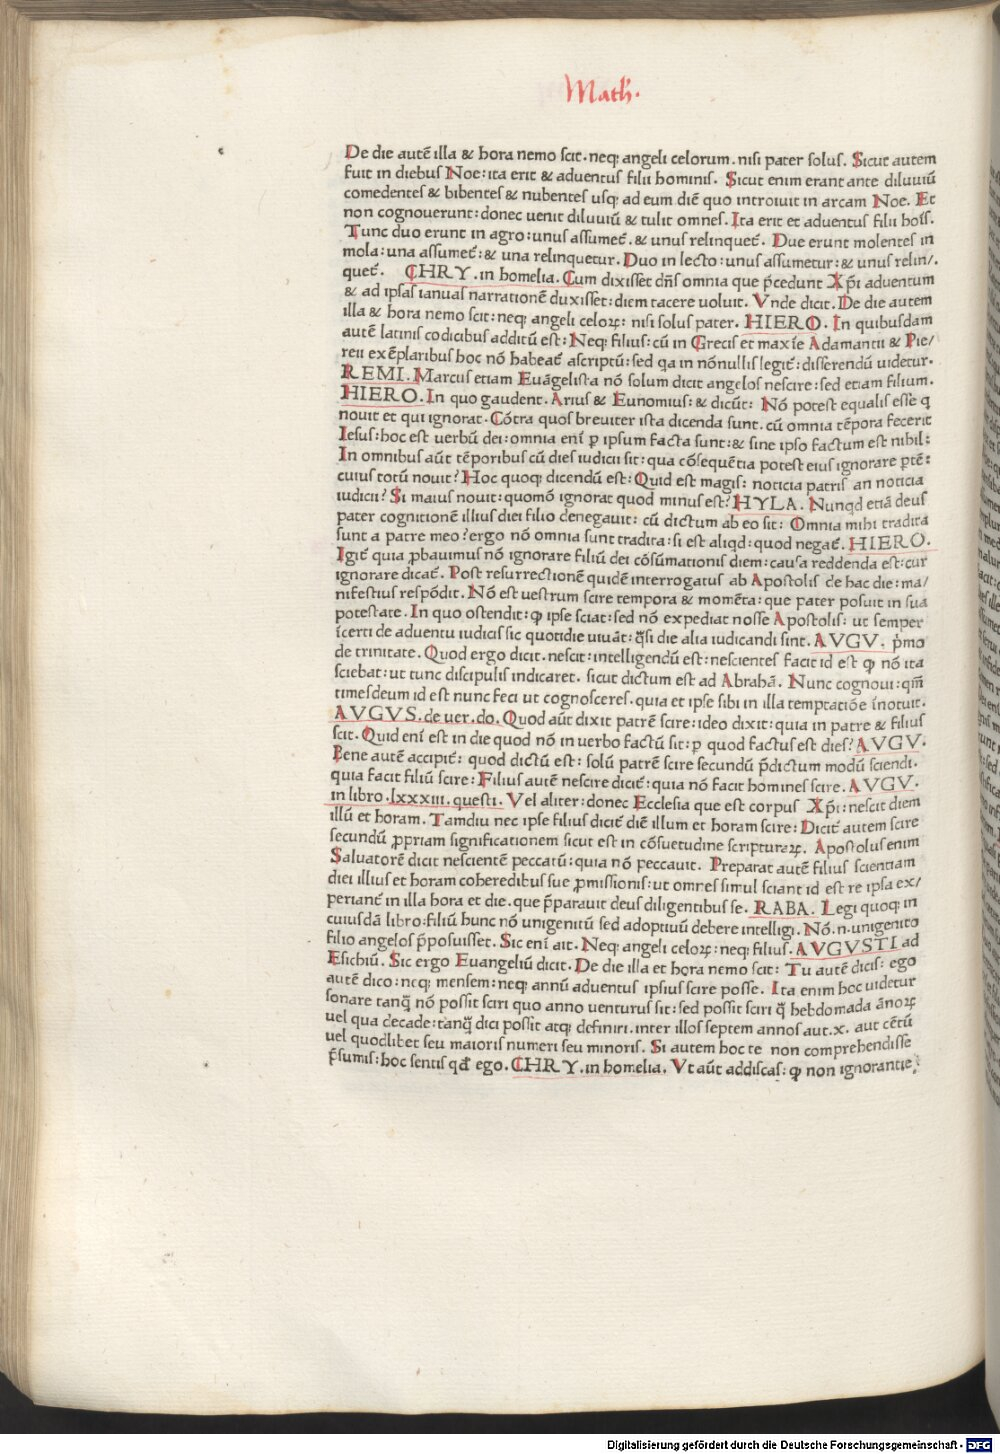 Math.
De die autē illa & hora nemo scit. neq; angeli celorum. nisi pater solus. Sicut autem
fuit in diebus Noe: ita erit & aduentus filii hominis. Sicut enim erant ante diluuiū
comedentes & bibentes & nubentes usq; ad eum diē quo introiuit in arcam Noe. Et
non cognouerunt: donec uenit diluuiū & tulit omnes. Ita erit et aduentus filii hoīs.
Tunc duo erunt in agro: unus assumet̄. & unus relinquet̄. Due erunt molentes in
mola: una assumet̄: & una relinquetur. Duo in lecto: unus assumetur: & unus relin/.
quet̄. CHRY. in homelia. Cum dixisset dn̄s omnia que p̄cedunt Xp̄i aduentum
& ad ipsas ianuas narrationē duxisset: diem tacere uoluit. Vnde dicit. De die autem
illa & hora nemo scit: neq; angeli celoꝝ: nisi solus pater. HIERO. In quibusdam
autē latinis codicibus additū est: Neq; filius: cū in Grecis et maxīe Adamantii & Pie/
reii exēplaribus hoc nō habeat̄ ascriptū: sed qa in nōnullis legit̄: disserendū uidetur.
REMI. Marcus etiam Euāgelista nō solum dicit angelos nescire: sed etiam filium.
HIERO. In quo gaudent. Arius & Eunomius: & dicūt: Nō potest equalis esse q
nouit et qui ignorat. Cōtra quos breuiter ista dicenda sunt. cū omnia tēpora fecerit
Iesus: hoc est uerbū dei: omnia enī ꝑ ipsum facta sunt: & sine ipso factum est nihil:
In omnibus aūt tēporibus cū dies iudicii sit: qua cōsequētia potest eius ignorare ꝑtē:
cuius totū nouit? Hoc quoq; dicendū est: Quid est magis: noticia patris an noticia
iudicii? Si maius nouit: quomō ignorat quod minus est? HYLA. Nunqd etiā deus
pater cognitionē illius diei filio denegauit: cū dictum ab eo sit: Omnia mihi tradita
sunt a patre meo? ergo nō omnia sunt tradita: si est aliqd: quod negat̄. HIERO.
Igit̄ quia ꝓbauimus nō ignorare filiū dei cōsūmationis diem: causa reddenda est: cur
ignorare dicat̄. Post resurrectionē quidē interrogatus ab Apostolis de hac die: ma/
nifestius respōdit. Nō est uestrum scire tempora & momēta: que pater posuit in sua
potestate. In quo ostendit: ꝙ ipse sciat: sed nō expediat nosse Apostolis: ut semper
īcerti de aduentu iudicis sic quotidie uiuāt: q̄si die alia iudicandi sint. AVGV. p̄mo
de trinitate. Quod ergo dicit. nescit: intelligendū est: nescientes facit id est ꝙ nō ita
sciebat: ut tunc discipulis indicaret. sicut dictum est ad Abrahā. Nunc cognoui: qm̄
times deum id est nunc feci ut cognosceres. quia et ipse sibi in illa temptatiōe īnotuit.
AVGVS. de uer. do. Quod aūt dixit patrē scire: ideo dixit: quia in patre & filius
scit. Quid enī est in die quod nō in uerbo factū sit: ꝑ quod factus est dies? AVGV.
Bene autē accipit̄: quod dictū est: solū patrē scire secundū p̄dictum modū sciendi.
quia facit filiū scire: Filius autē nescire dicit̄: quia nō facit homines scire. AVGV.
in libro. lxxxiii. questi. Vel aliter: donec Ecclesia que est corpus Xp̄i: nescit diem
illū et horam. Tamdiu nec ipse filius dicit̄ diē illum et horam scire: Dicit̄ autem scire
secundū ꝓpriam significationem sicut est in cōsuetudine scripturaꝝ. Apostolus enim
Saluatorē dicit nescientē peccatū: quia nō peccauit. Preparat autē filius scientiam
diei illius et horam coheredibus sue ꝓmissionis: ut omnes simul sciant id est re ipsa ex/
periant̄ in illa hora et die. que p̄parauit deus diligentibus se. RABA. Legi quoq; in
cuiusdā libro: filiū hunc nō unigenitū sed adoptiuū debere intelligi. Nō. n. unigenito
filio angelos p̄posuisset. Sic enī ait. Neq; angeli celoꝝ: neq; filius. AVGVSTI ad
Esichiū. Sic ergo Euangeliū dicit. De die illa et hora nemo scit: Tu autē dicis: ego
autē dico: neq; mensem: neq; annū aduentus ipsius scire posse. Ita enim hoc uidetur
sonare tanq̄ nō possit sciri quo anno venturus sit: sed possit sciri q̄ hebdomada ānoꝝ
uel qua decade: tanq̄ dici possit atq; definiri. inter illos septem annos aut. x. aut cētū
uel quodlibet seu maioris numeri seu minoris. Si autem hoc te non comprehendisse
p̄sumis: hoc sentis qd̄ ego. CHRY. in homelia. Vt aūt addiscas: ꝙ non ignorantie
Digitalisierung gefördert durch die Deutsche Forschungsgemeinschaft - DFG